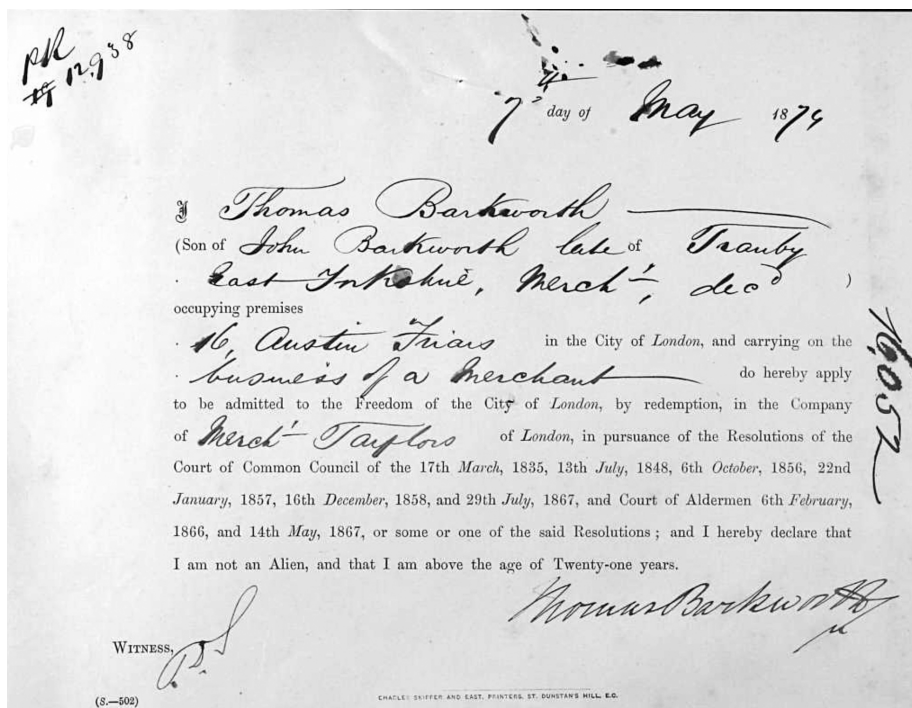 PR
12,938
7th day of May 1874
I Thomas Barkworth
(Son of John Barkworth late of Tranby
East Yorkshire, Mercht, decd )
occupying premises
16 Austin Friars in the City of London, and carrying on the
business of a Merchant do hereby apply
to be admitted to the Freedom of the City of London, by redemption, in the Company
of Mercht Taylors of London, in pursuance of the Resolutions of the
Court of Common Council of the 17th March, 1835, 13th July, 1848, 6th October, 1856, 22nd
January, 1857, 16th December, 1858, and 29th July, 1867, and Court of Aldermen 6th February,
1866, and 14th May, 1867, or some or one of the said Resolutions ; and I hereby declare that
I am not an Alien, and that I am above the age of Twenty-one years.
Thomas Barkworth
WITNESS,
(S.—502)
CHARLES SKIPPER AND EAST, PRINTERS, ST. DUNSTAN'S HILL, E.C.
16,052